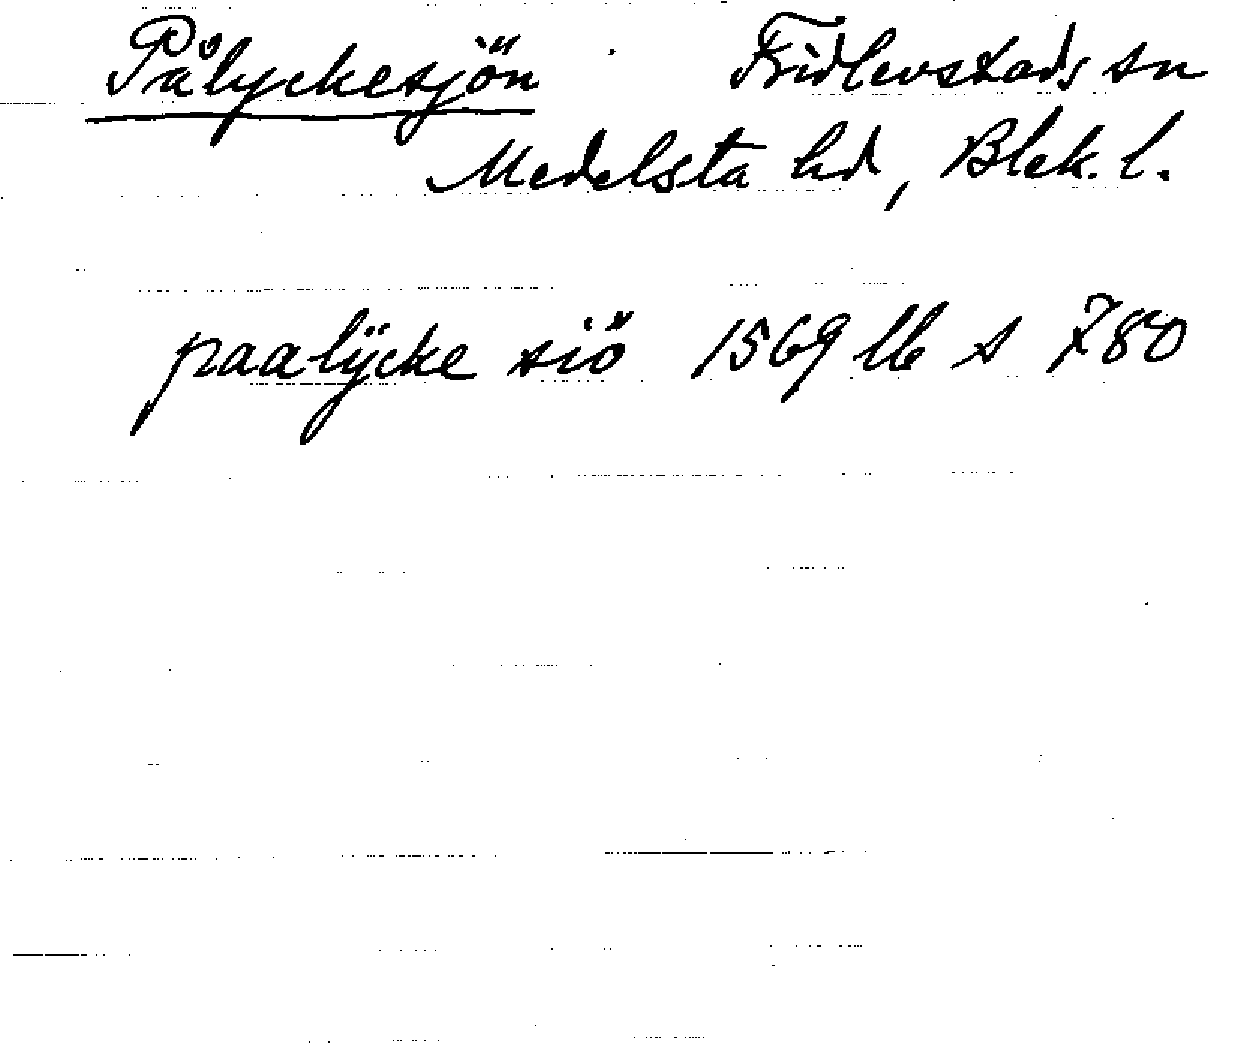 Pålyckesjön Fridlevstads sn
Medelsta hd, Blek. l.
paalÿcke siö 1569 lb s 780